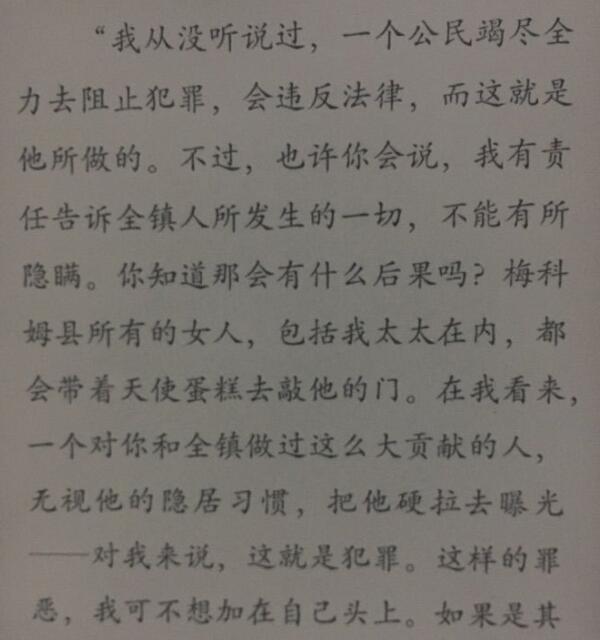 “我从没听说过，一个公民竭尽全
力去阻止犯罪，会违反法律，而这就是
他所做的。不过，也许你会说，我有责
任告诉全镇人所发生的一切，不能有所
隐瞒。你知道那会有什么后果吗？梅科
姆县所有的女人，包括我太太在内，都
会带着天使蛋糕去敲他的门。在我看来，
一个对你和全镇做过这么大贡献的人，
无视他的隐居习惯，把他硬拉去曝光
——对我来说，这就是犯罪。这样的罪
恶，我可不想加在自己头上。如果是其